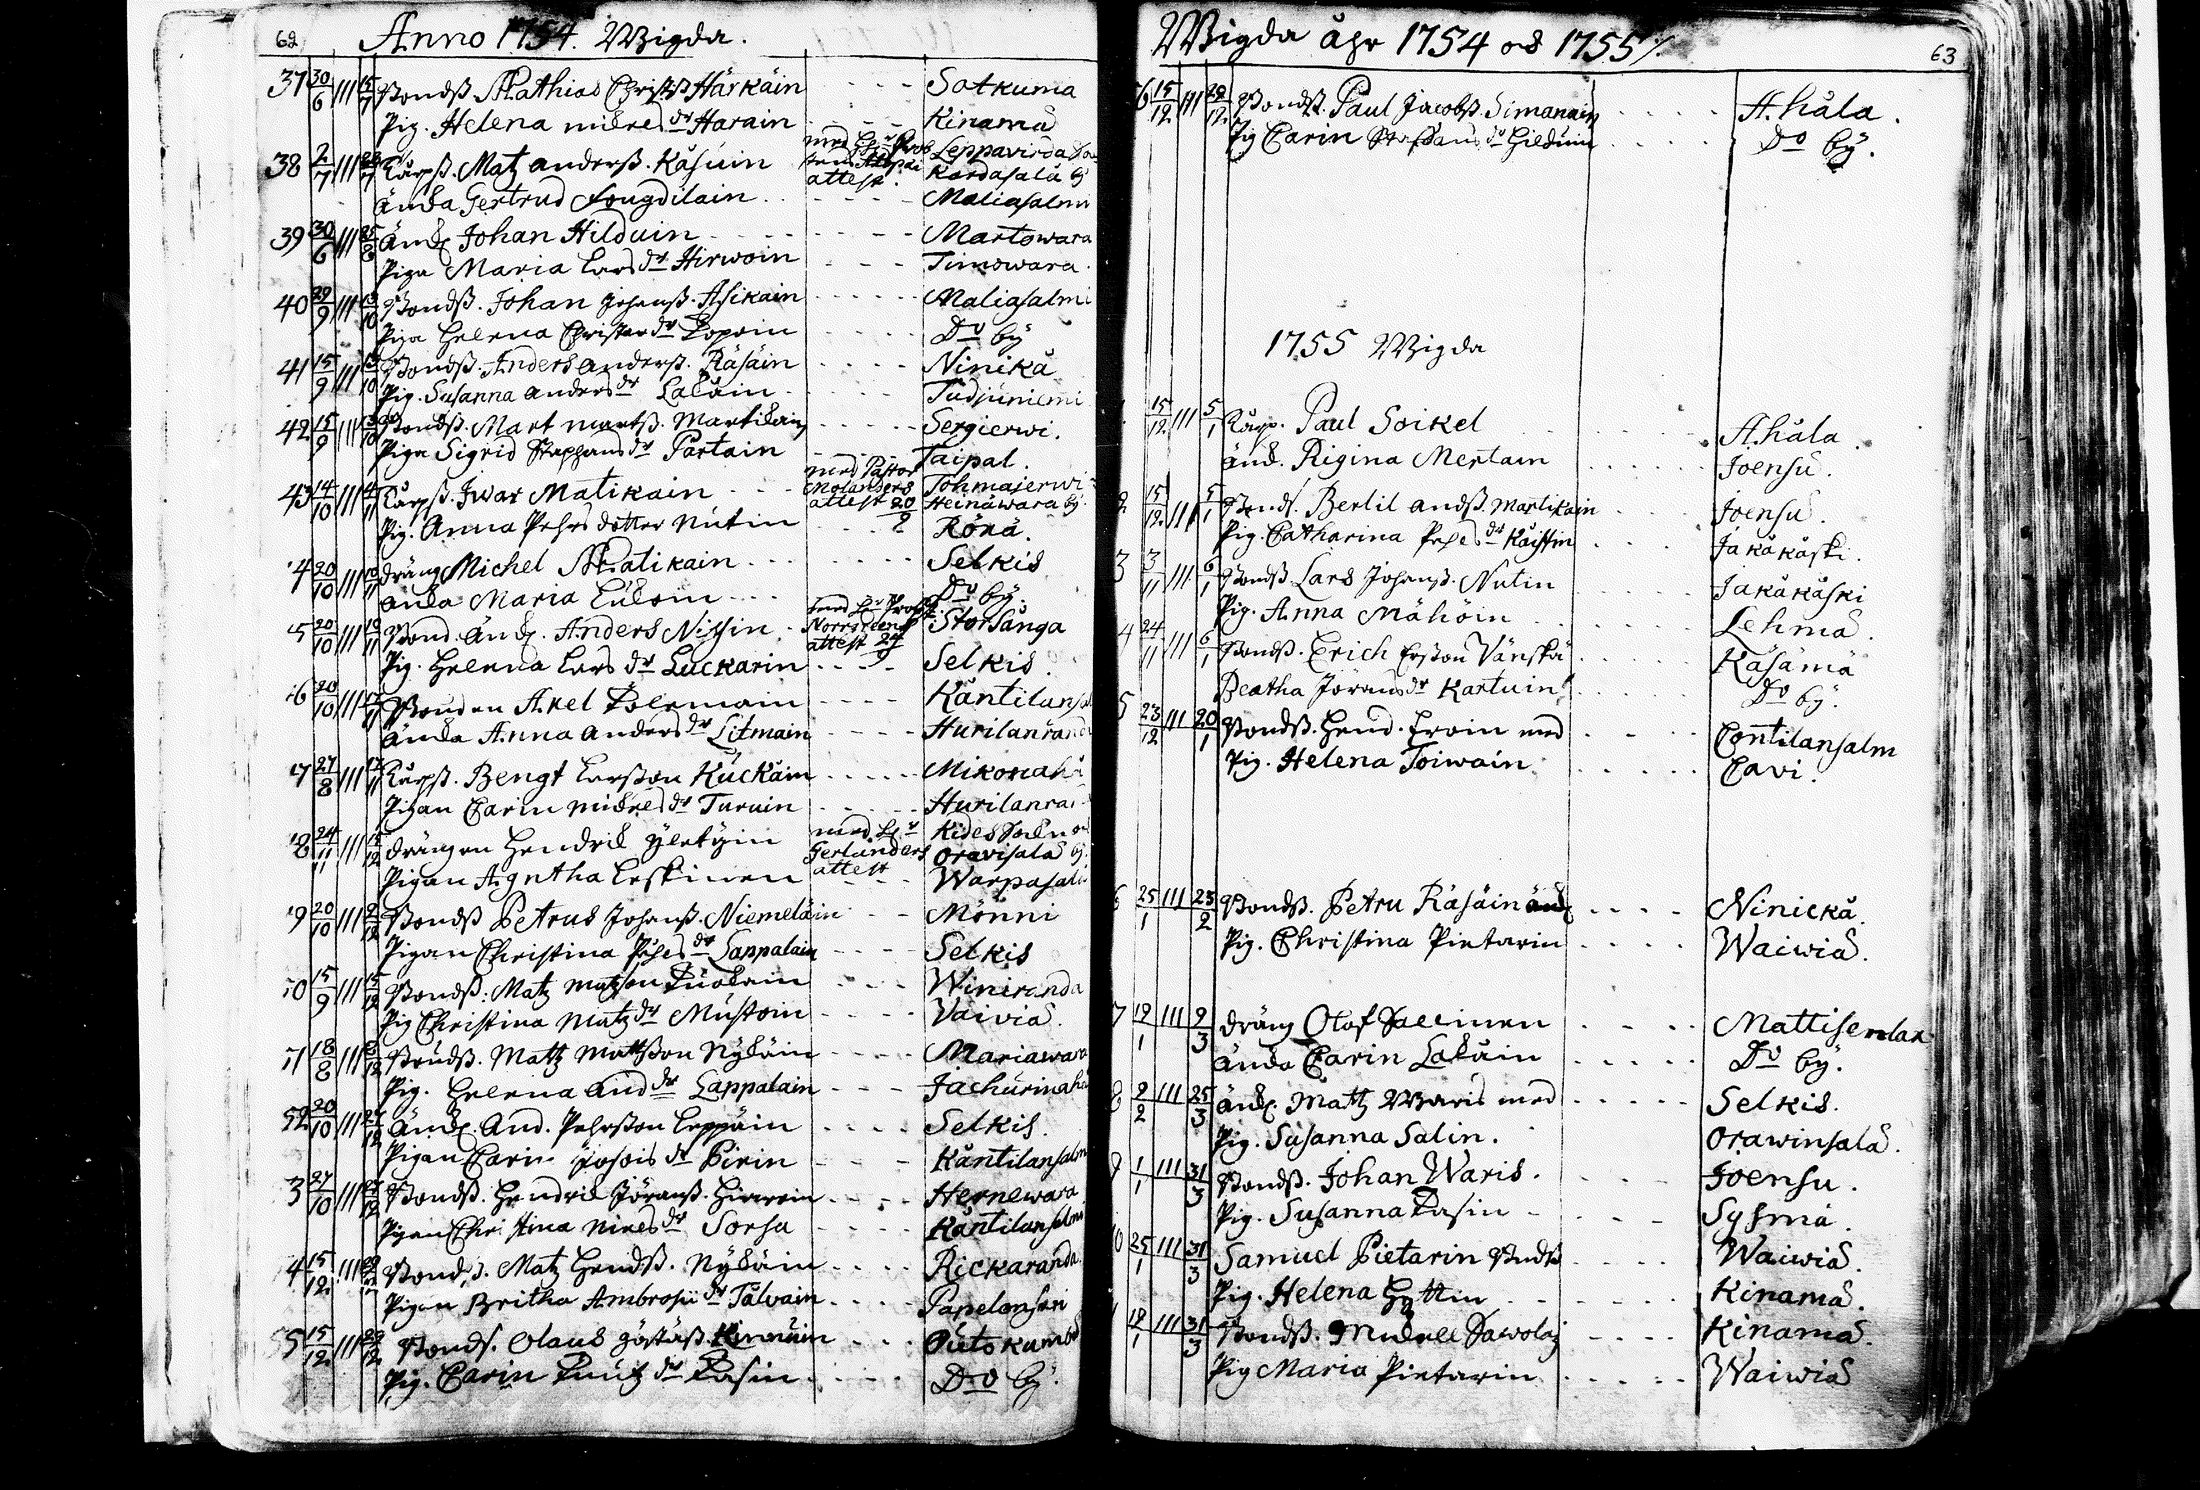 62 Anno 1754. Wigda.
37 30/6 III 15/7 Bondß Mathias Christß Härkäin - - - Sotkuma
Pig. Helena mickels dr Harain - - - Kinama
38 2/7 III Karpß. Matz anderß. Kåsuin med attest. Leppavirda Kardasala by
änka Gertrud Fougdilain - - - Maliasalmi
39 30/6 III 25/8 änk Johan Hilduin - - - Martowara
Piga Maria Lars dr Hirwoin - - - Timowara.
40 29/9 III 13/10 Bondß. Johan Johanß. Asikain - - - Maliasalmi
Piga Helena Christer dr Popoin - - - Do by
41 15/9 III 13/10 Bondß. Anders anderß. Räsäin - - - Ninikä
Pig. Susanna anders dr Lakäin - - - Tudjuniemi
42 15/9 III 13/10 Bondß. Mart martß. Martikain - - - Sergierwi.
Piga Sigrid Staphans dr Partain - - - Taipal.
43 14/10 III 4/11 Karpß. Iwar Matikain - - - med Pastor Molanders attest 20/9 Tohmajerwi Heinäwara by.
Pig. Anna Pehrs dotter Nutin - - - Röxä.
4 20/10 III 10/11 dräng Michel Matikain - - - Selkis
änka Maria Lukoin - - - Do by.
5 20/10 III 10/11 Bond. änk. Anders Nissin med Hr Prost attest 24/9 Storsånga
Pig. Helena Lars dr Luckarin - - - Selkis.
6 20/10 III 17/11 Bonden Axel Dolemain - - - Käntilansal
änka Anna anders dr Litmain - - - Hurilanranda
7 27/8 III 17/11 Karpß. Bengt Larsson Kuckäin - - - Mikonaho
Pigan Carin mickels dr Turuin - - - Hurilanran
8 24/11 III 15/12 drängen Hendrik Yletyin med Hr Gerlanders attest Kides Sokn och Oravisala by.
Pigan Agntha Leskinen - - - Warpasalo
9 20/10 III 2/12 Bondß Petrus Johanß. Niemeläin - - - Mönni
Pigan Christina Pehrs dr Lappalain - - - Selkis
0 15/9 III 15/12 Bondß: Matz matzson Kuokain - - - Winiranda
Pig Christina Matz dr Mustoin - - - Vaivia.
1 18/8 III 12 Bondß. Matz Mattsson Nykäin - - - Mariawara
Pig. Helena And dr Lappalain - - - Jachurinaho
52 20/10 III 12 Änk. And. Pehrsson Leppäin - - - Selkis.
Pigan Carin dr Pirin - - - Käntilansalmi
3 27/10 III 12 Bondß. Hendrik Jöranß. Hirwoin - - - Hernewara
Pigan Christina nines dr Sorsa - - - Käntilansalmi
4 15/12 III Bondß. Matz Hendß. Nykäin - - - Rickaranda.
Pigan Britha Ambrosii dr Talvain - - - Papelonsari
55 15/12 III 29/12 Bonds. Olaus göstaß Kinnuin - - - Outokumbo
Pig. Carin Knutz dr Pasin - - - Do by.
Wigda åhr 1754 och 1755 63
6 15/12 III 29/12 Bondß. Paul Jacobß. Simanain - - - Ahåla.
Pig Carin Staffans dr Hilduin - - - Do by.
1755 Wigda
15/12 III 5/1 Karp. Paul Soikel - - - Ahåla.
änk. Rigina Mertain - - - Joensu.
2 15/12 III 5/1 Bonds. Bertil andß. Martikain - - - Joensu.
Pig. Catharina Pehrs dr Käistin - - - Jakåkåski.
3 3/11 III 6/1 Bondß Lars Johanß. Nutin - - - Jakåkåski
Pig. Anna Mähöin - - - Lehmä.
4 24/11 III 6/1 Bondß. Erich Ersson Vänskä - - - Käsämä
Beatha Jörans dr Kartuin - - - Do by.
5 23/12 III 20/1 Bondß. Hend. Eroin med - - - Contilansalm
Pig. Helena Toiwain - - - Cavi.
6 25/1 III 23/2 Bondß. Petru Räsäin änk - - - Ninickä.
Pig. Christina Pietarin - - - Waiwia.
7 19/1 III 9/3 dräng Olof Saeinen - - - Mattisenlax
änka Carin Lakäin - - - Do by.
8 9/2 III 25/3 änk. Matz Waris med - - - Selkis.
Pig. Susanna Salin. - - - Orawinsala.
9 1/1 III 31/3 Bondß. Johan Waris. - - - Joensu.
Pig. Susanna Pasin - - - Sysmä.
0 25/1 III 31/3 Samuel Pietarin Bondß - - - Waiwia.
Pig. Helena - - - Kinama.
19/1 III 31/3 Bondß. Mickell Sawolai - - - Kinama.
Pig Maria Pietarin - - - Waiwia